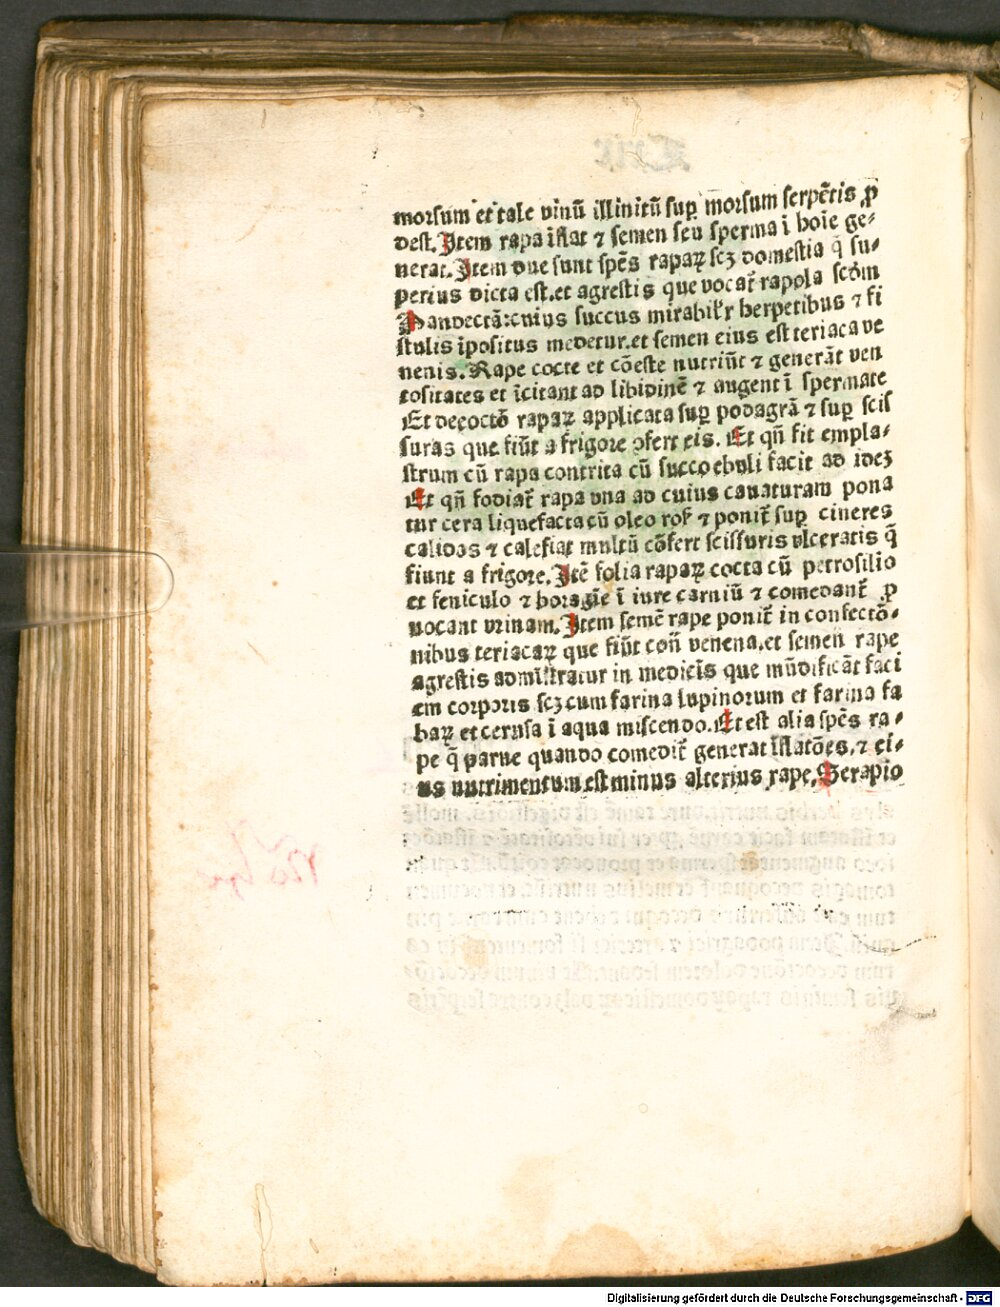 morsum et tale vinū illinitū sup̱ morsum serpētis ꝓ
dest. Item rapa īflat ⁊ semen seu sperma ī hoīe ge⸗
nerat. Item due sunt spēs rapaꝝ scꝫ domestia q̄ su⸗
perius dicta est. et agrestis que vocat̄ rapola scōm
Pandectā: cuius succus mirabilꝛ herpetibus ⁊ fi
stulis īpositus medetur. et semen eius est teriaca ve
nenis. Rape cocte et cōeste nutriūt ⁊ generāt ven
tositates et īcitant ad libidinē ⁊ augent ī spermate
Et decoctō rapaꝝ applicata sup̱ podagrā ⁊ sup̱ scis
suras que fiūt a frigore ꝯfert eis. Et qn̄ fit empla⸗
strum cū rapa contrita cū succo ebuli facit ad ideꝫ
Et qn̄ fodiat̄ rapa vna ad cuius cauaturam pona
tur cera liquefacta cū oleo ros̄ ⁊ ponit̄ sup̱ cineres
calidos ⁊ calefiat multū cōfert scissuris vlceratis q̄
fiunt a frigore. Itē folia rapaꝝ cocta cū petrosilio
et feniculo ⁊ boragīe ī iure carniū ⁊ comedant̄ ꝓ
uocant vrinam. Item semē rape ponit̄ in confectō⸗
nibus teriacaꝝ que fiūt con̄ venena. et semen rape
agrestis admīstratur in medicīs que mūdificāt faci
em corporis scꝫ cum farina lupinorum et farina fa
baꝝ et cerusa ī aqua miscendo. Et est alia spēs ra⸗
pe q̄ parue quando comedit̄ generat īflatōes, ⁊ ei⸗
us nutrimentum est minus alterius rape. Serapio
Digitalisierung gefördert durch die Deutsche Forschungsgemeinschaft - DFG